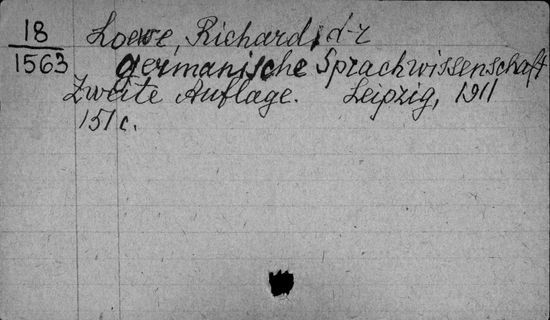 18
1563
Loewe, Richard, d-r
germanische Sprachwissenschaft
Zweite Auflage. Leipzig, 1911
151 c.